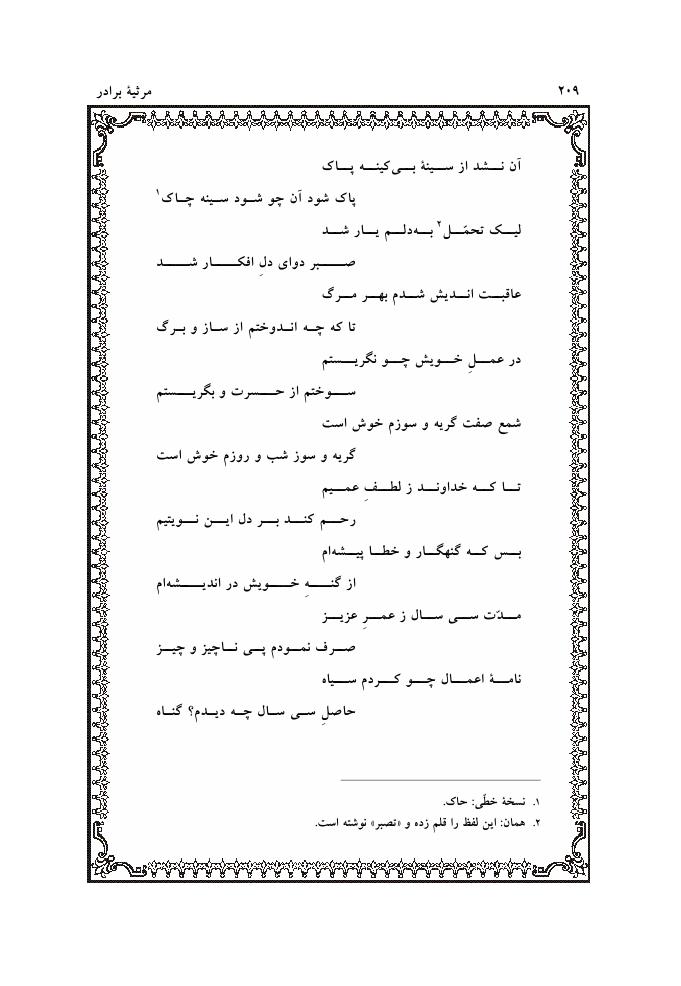 ۲۰۹ مرثیهٔ برادر
آن نشد از سینهٔ بی‌کینه پاک
پاک شود آن چو شود سینه چاک۱
لیک تحمّل۲ به‌دلم یار شد
صبر دوای دلِ افکار شد
عاقبت اندیش شدم بهر مرگ
تا که چه اندوختم از ساز و برگ
در عملِ خویش چو نگریستم
سوختم از حسرت و بگریستم
شمع صفت گریه و سوزم خوش است
گریه و سوز شب و روزم خوش است
تا که خداوند ز لطفِ عمیم
رحم کند بر دل این نویتیم
بس که گنهگار و خطا پیشه‌ام
از گنهِ خویش در اندیشه‌ام
مدّت سی سال ز عمرِ عزیز
صرف نمودم پی ناچیز و چیز
نامهٔ اعمال چو کردم سیاه
حاصلِ سی سال چه دیدم؟ گناه
۱. نسخهٔ خطّی: حاک.
۲. همان: این لفظ را قلم زده و «تصبر» نوشته است.